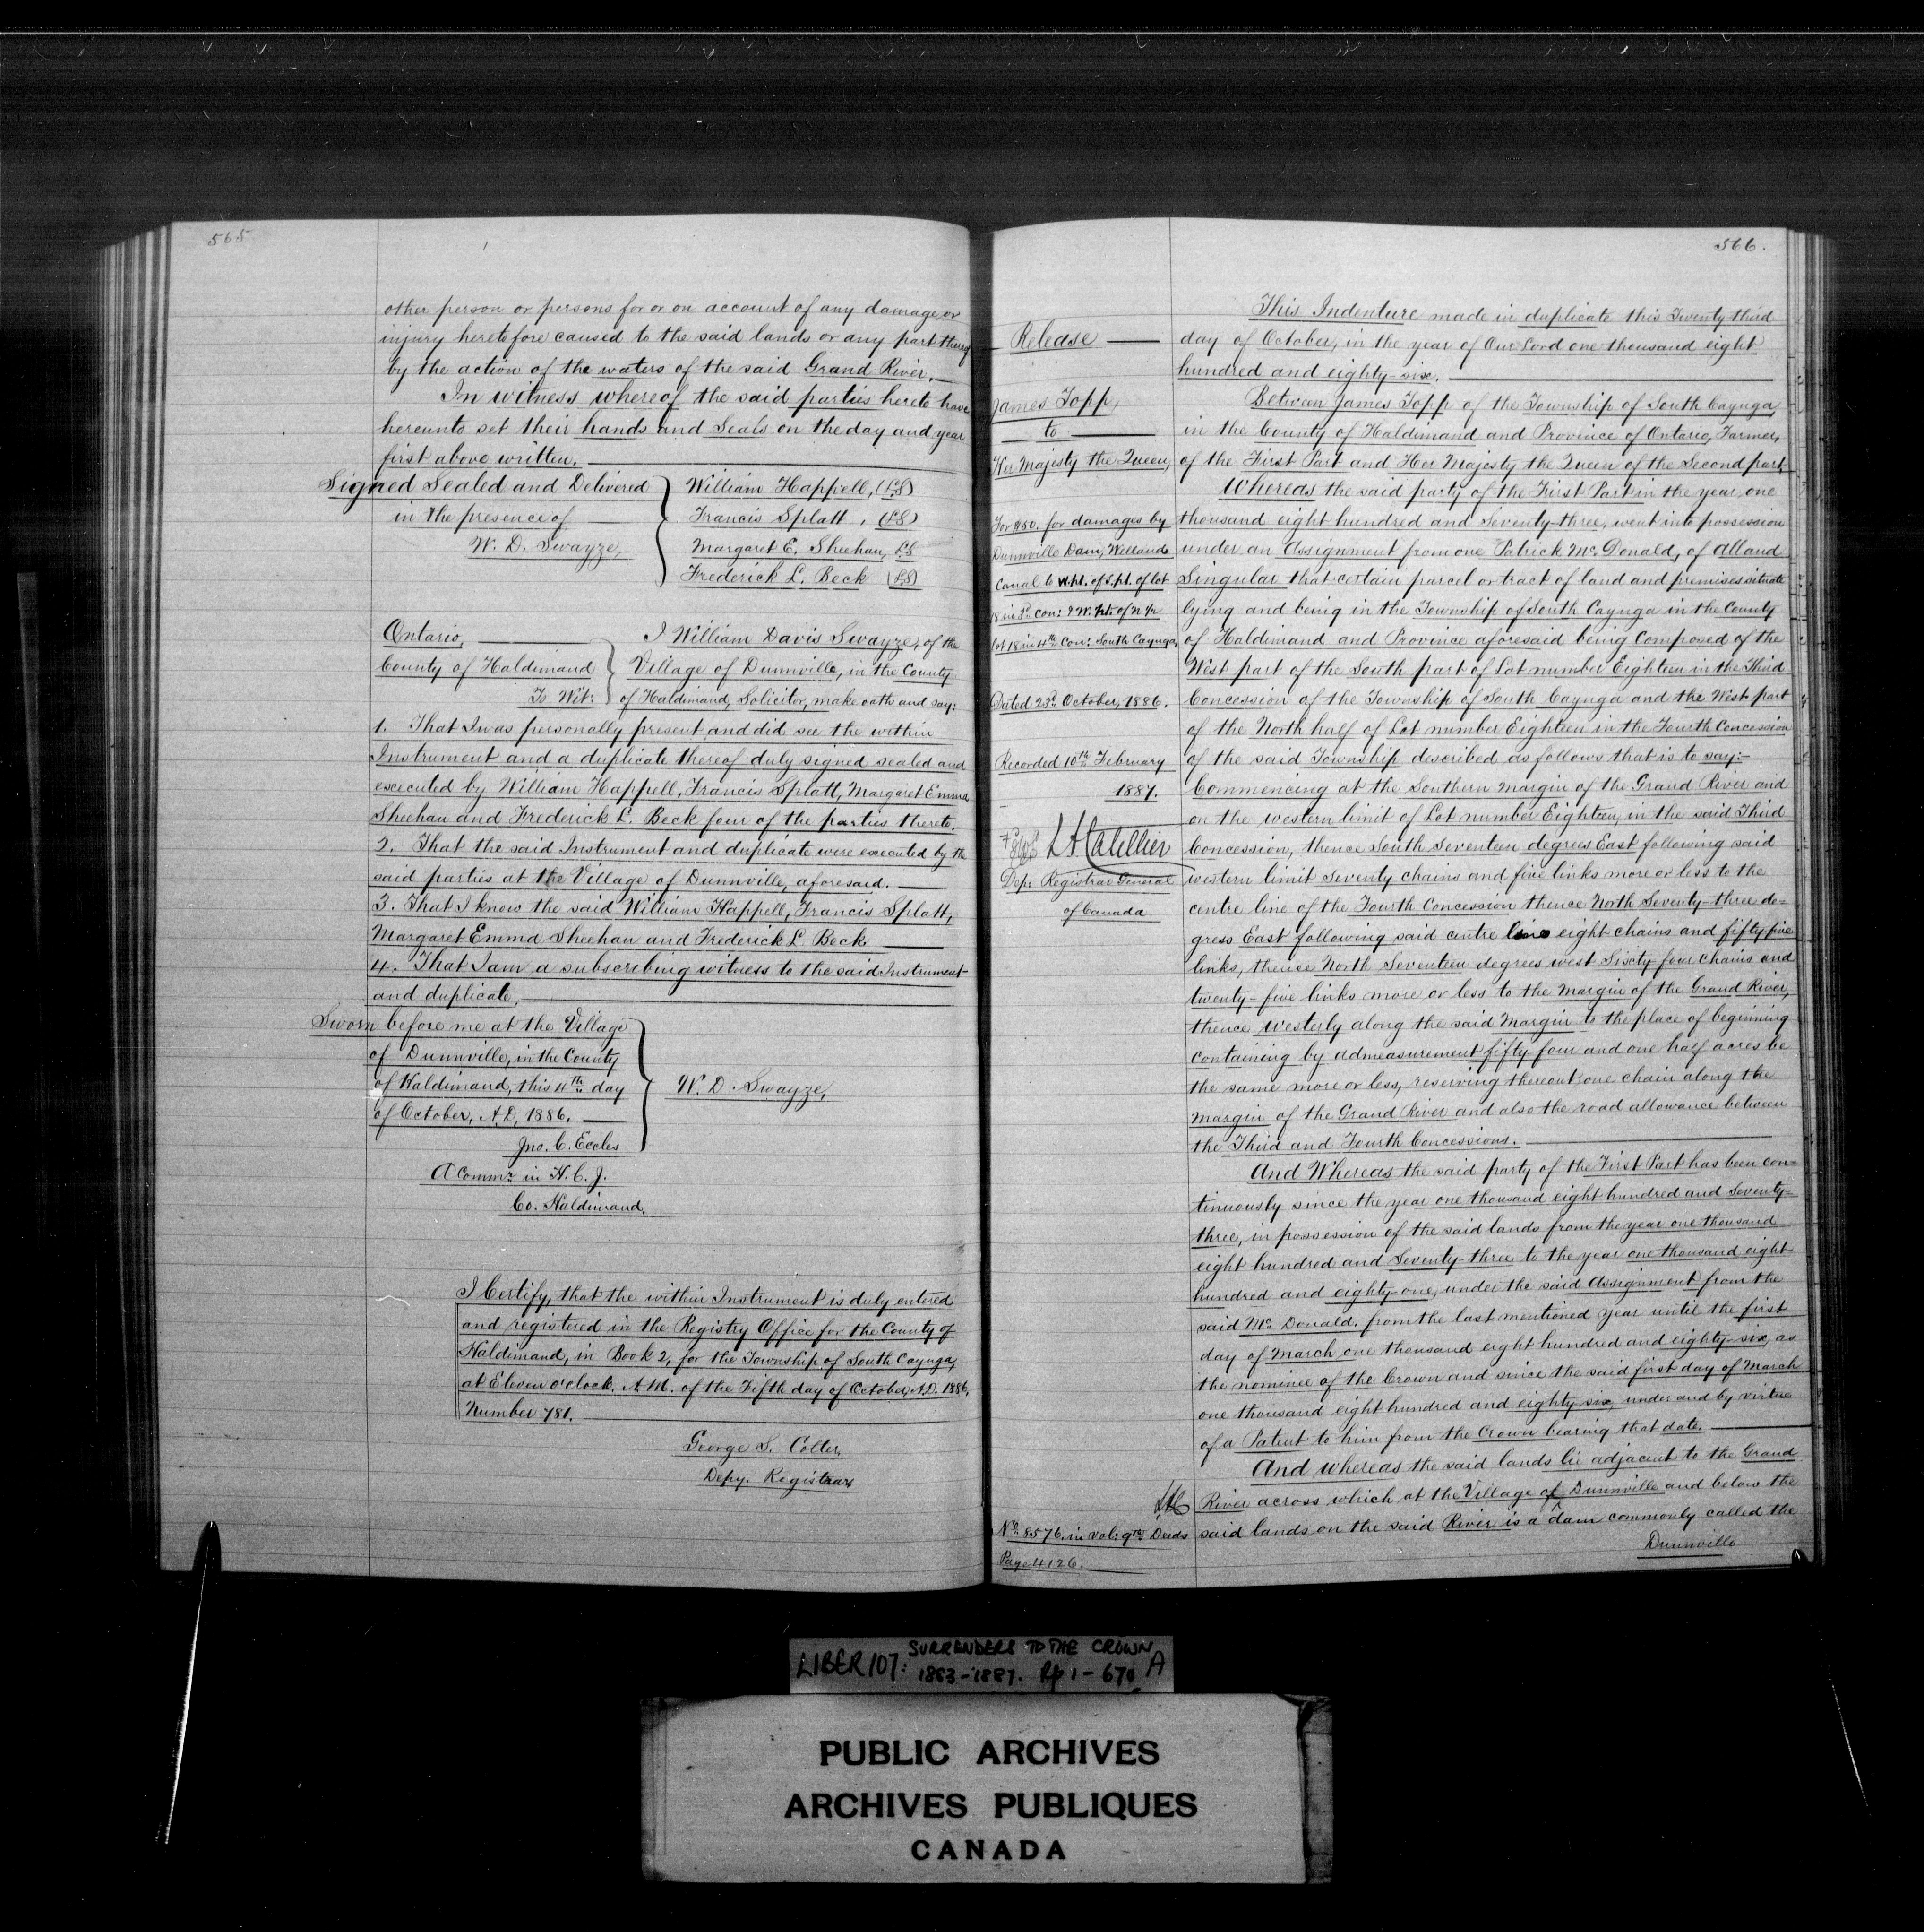 565
other person or persons for or on account of any damage or
injury heretofore caused to the said lands or any part thereof
by the action of the waters of the said Grand River.
In witness whereof the said parties hereto have
hereunto set their hands and Seals on the day and year
first above written.
Signed Sealed and Delivered
in the presence of
W. D. Swayze,
William Happell, (LS)
Francis Splatt, (LS)
Margaret E. Sheehan, LS
Frederick L. Beck (LS)
Ontario,
County of Haldimand
To Wit:
I William Davis Swayze, of the
Village of Dunnville, in the County
of Haldimand, Solicitor, make oath and say:
1. That I was personally present and did see the within
Instrument and a duplicate thereof duly signed sealed and
executed by William Happell, Francis Splatt, Margaret Emma
Sheehan and Frederick L. Beck four of the parties thereto.
2. That the said Instrument and duplicate were executed by the
said parties at the Village of Dunnville, aforesaid.
3. That I know the said William Happell, Francis Splatt,
Margaret Emma Sheehan and Frederick L Beck
4. That I am a subscribing witness to the said Instrument
and duplicate.
Sworn before me at the Village
of Dunnville, in the County
of Haldimand, this 4th day
of October, A.D, 1886.
Jno. C. Eccles
A Commr in H. C. J.
Co. Haldimand.
W. D. Swayze,
I Certify, that the within Instrument is duly entered
and registered in the Registry Office for the County of
Haldimand, in Book 2, for the Township of South Cayuga,
at Eleven o'clock. A.M. of the Fifth day of October, A.D. 1886,
Number 781.
George S. Colter.
Depy. Registrar
566.
Release
James Topp,
to
Her Majesty the Queen,
For $50. for damages by
Dunnville Dam, Welland
Canal to W. pt. of S. pt. of lot
18 in 3d con: & W. pt. of N ½
lot 18 in 4th Con: South Cayuga,
Dated 23d October, 1886.
Recorded 10th February
1887.
L A Catellier
Dep: Registrar General
of Canada
No 8576 in vol: 9ro Deeds
Page 4126.
This Indenture made in duplicate this Twenty third
day of October, in the year of Our Lord one thousand eight
hundred and eighty-six.
Between James Topp of the Township of South Cayuga
in the County of Haldimand and Province of Ontario, Farmer,
of the First Part and Her Majesty the Queen of the Second part,
Whereas the said party of the First Part in the year one
thousand eight hundred and Seventy-three, went into possession
under an Assignment from one Patrick Mc Donald, of all and
Singular that certain parcel or tract of land and premises situate
lying and being in the Township of South Cayuga in the County
of Haldimand and Province aforesaid being Composed of the
West part of the South part of Lot number Eighteen in the Third
Concession of the Township of South Cayuga and the West part
of the North half of Lot number Eighteen in the Fourth Concession
of the said Township described as follows that is to say:-
Commencing at the Southern Margin of the Grand River and
on the western limit of Lot number Eighteen, in the said Third
Concession, thence South Seventeen degrees East following said
western limit Seventy chains and five links more or less to the
centre line of the Fourth Concession thence North Seventy-three de=
grees East following said centre line eight chains and fifty five
links, thence North Seventeen degrees west Sixty-four chains and
twenty-five links more or less to the Margin of the Grand River,
thence Westerly along the said Margin to the place of beginning
containing by admeasurement fifty four and one half acres be
the same more or less, reserving thereout one chain along the
margin of the Grand River and also the road allowance between
the Third and Fourth Concessions.
And Whereas the said party of the First Part has been con=
tinuously since the year one thousand eight hundred and Seventy=
three, in possession of the said lands from the year one thousand
eight hundred and Seventy-three to the year one thousand eight
hundred and eighty-one, under the said Assignment from the
said Mc Donald, from the last mentioned year until the first
day of March one thousand eight hundred and eighty-six, as
the nominee of the Crown and since the said first day of March
one thousand eight hundred and eighty-six, under and by virtue
of a Patent to him from the Crown bearing that date.
And whereas the said lands lie adjacent to the Grand
River across which at the Village of Dunnville and below the
said lands on the said River is a dam commonly called the
Dunnville
LIBER 107: SURRENDERS TO THE CROWN
1883-1887. Pp 1-670 A
PUBLIC ARCHIVES
ARCHIVES PUBLIQUES
CANADA